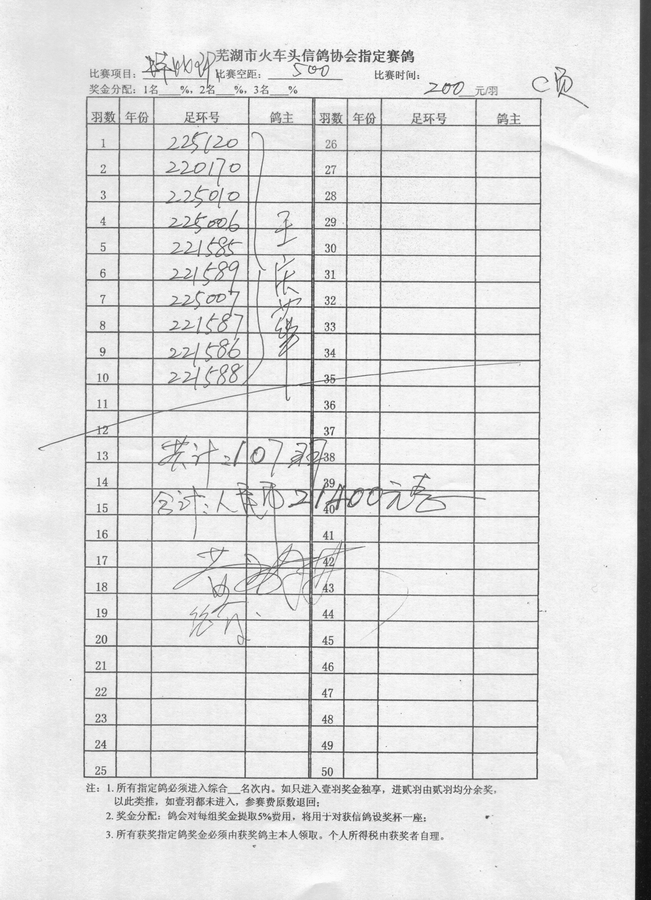 芜湖市火车头信鸽协会指定赛鸽
比赛项目： 比赛空距： 500 比赛时间：
奖金分配：1名 %，2名 %，3名 % 200 元/羽 C页
羽数 年份 足环号 鸽主 羽数 年份 足环号 鸽主
1 225120 26
2 220170 27
3 225010 28
4 225006 王 29
5 221585 30
6 221589 31
7 225007 32
8 221587 33
9 221586 34
10 221588 35
11 36
12 37
13 共计：107羽 38
14 39
15 合计：人民币21400元 40
16 41
17 42
18 43
19 44
20 45
21 46
22 47
23 48
24 49
25 50
注：1. 所有指定鸽必须进入综合__名次内。如只进入壹羽奖金独享，进贰羽由贰羽均分余奖，
以此类推，如壹羽都未进入，参赛费原数退回；
2. 奖金分配：鸽会对每组奖金提取5%费用，将用于对获信鸽设奖杯一座；
3. 所有获奖指定鸽奖金必须由获奖鸽主本人领取。个人所得税由获奖者自理。